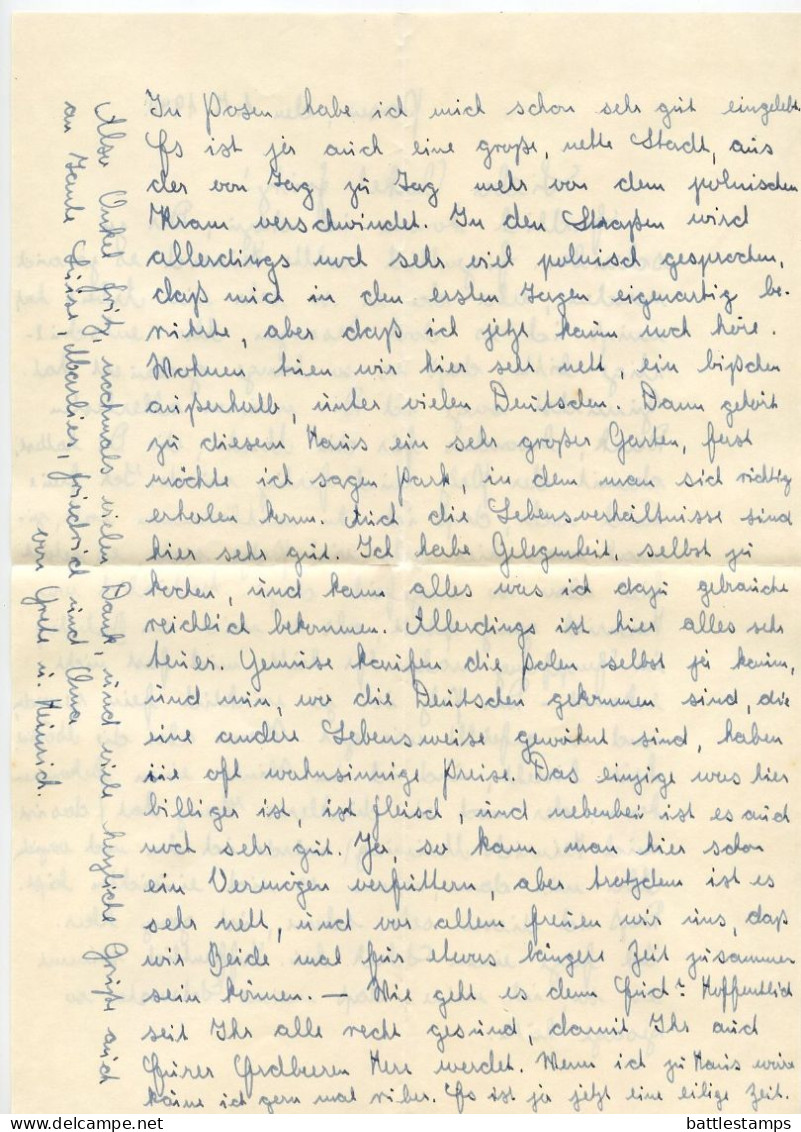 In Posen habe ich mich schon sehr gut eingelebt.
Es ist ja auch eine große, nette Stadt, aus
der von Tag zu Tag mehr von dem polnischen
Kram verschwindet. In den Straßen wird
allerdings noch sehr viel polnisch gesprochen,
daß mich in den ersten Tagen eigenartig be-
rührte, aber daß ich jetzt kaum noch höre.
Wohnen tuen wir hier sehr nett, ein bißchen
außerhalb, unter vielen Deutschen. Dann gehört
zu diesem Haus ein sehr großer Garten, fast
möchte ich sagen Park, in dem man sich richtig
erholen kann. Auch die Lebensverhältnisse sind
hier sehr gut. Ich habe Gelegenheit, selbst zu
kochen, und kann alles was ich dazu gebrauche
reichlich bekommen. Allerdings ist hier alles sehr
teuer. Gemüse kaufen die Polen selbst ja kaum,
und nun, wo die Deutschen gekommen sind, die
eine andere Lebensweise gewöhnt sind, haben
sie oft wahnsinnige Preise. Das einzige was hier
billiger ist, ist Fleisch, und nebenbei ist es auch
noch sehr gut. Ja, so kann man hier schon
ein Vermögen verfüttern, aber trotzdem ist es
sehr nett, und vor allem freuen wir uns, daß
wir Beide mal für etwas längere Zeit zusammen
sein können. — Wie geht es dem Hoffentlich
seit Ihr alle recht gesund, damit Ihr auch
Eurer Erdbeeren Herr werdet. Wenn ich zu Haus wäre
käme ich gern mal rüber. Es ist ja jetzt eine eilige Zeit.
Also Onkel Fritz, nochmals vielen Dank, und viele herzliche Grüße auch
an Tante Luise, Marlies, Friedrich und Oma
von Grete u. Heinrich.
battlestamps